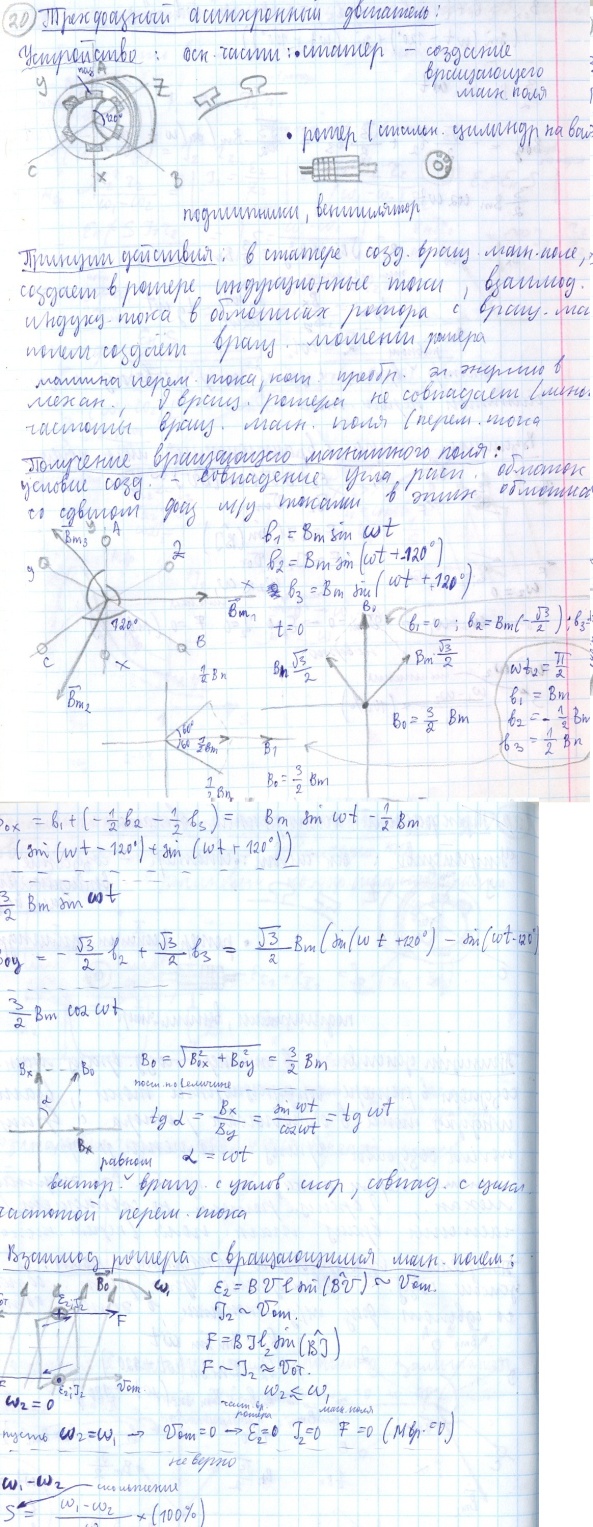 20 Трехфазный асинхронный двигатель:
Устройство: осн. части: • статер – создание
вращающего
магн. поля
паз A
У Z
120°
C X B
• ротер (стальн. цилиндр на вал
подшипники, вентилятор
Принцип действия: в статере созд. вращ. магн. поле,
создает в ротере индукционные токи, взаимод.
индукц. тока в обмотках ротора с вращ. ма
полем создаёт вращ. момент ротера
машина перем. тока, кот преобр. эл. энергию в
механ., вращ. ротера не совпадает (мень
частоты вращ. магн. поля (перем. тока
Получение вращающего магнитного поля:
условие созд. – совпадение угла расп. обмоток
со сдвигом фаз м/у токами в этих обмотка
Bm3 A
У Z
X
Bm1
120°
C X B
Bm2
b1 = Bm sin ωt
b2 = Bm sin (ωt - 120°)
b3 = Bm sin (ωt + 120°)
t=0
B0
b1=0 ; b2=Bm(-√3/2) ; b3=
Bm √3/2
Bm √3/2
B0 = 3/2 Bm
ωt2 = π/2
b1 = Bm
b2 = -1/2 Bm
b3 = 1/2 Bm
1/2 Bm
60°
60 1/2 Bm B1
1/2 Bm
B0 = 3/2 Bm
B0x = b1 + (-1/2 b2 - 1/2 b3) = Bm sin ωt - 1/2 Bm
(sin(ωt - 120°) + sin (ωt + 120°))
3/2 Bm sin ωt
B0y = -√3/2 b2 + √3/2 b3 = √3/2 Bm (sin(ωt + 120°) - sin(ωt - 120°)
3/2 Bm cos ωt
Bx B0
α
Bx
B0 = √(B0x² + B0y²) = 3/2 Bm
пост. по величине
tg α = Bx/By = sin ωt/cos ωt = tg ωt
равном α = ωt
вектор вращ. с углов. скор, совпад. с цикл
частотой перем. тока
Взаимод ротера с вращающимся магн. полем:
B0 ω1
ε2, J2
F
ε2, J2 Vот.
ω2 = 0
ε2 = B V l sin(B^V) ~ Vот.
J2 ~ Vот.
F = B J2 l sin(B^J)
F ~ J2 ≈ Vот.
ω2 ≤ ω1
част. вр. ротера магн. поля
пусть ω2 = ω1 → Vот = 0 → ε2 = 0 J2 = 0 F = 0 (Mвр. = 0)
не верно
ω1 - ω2
скольжение
S = ω1 - ω2 / × (100%)